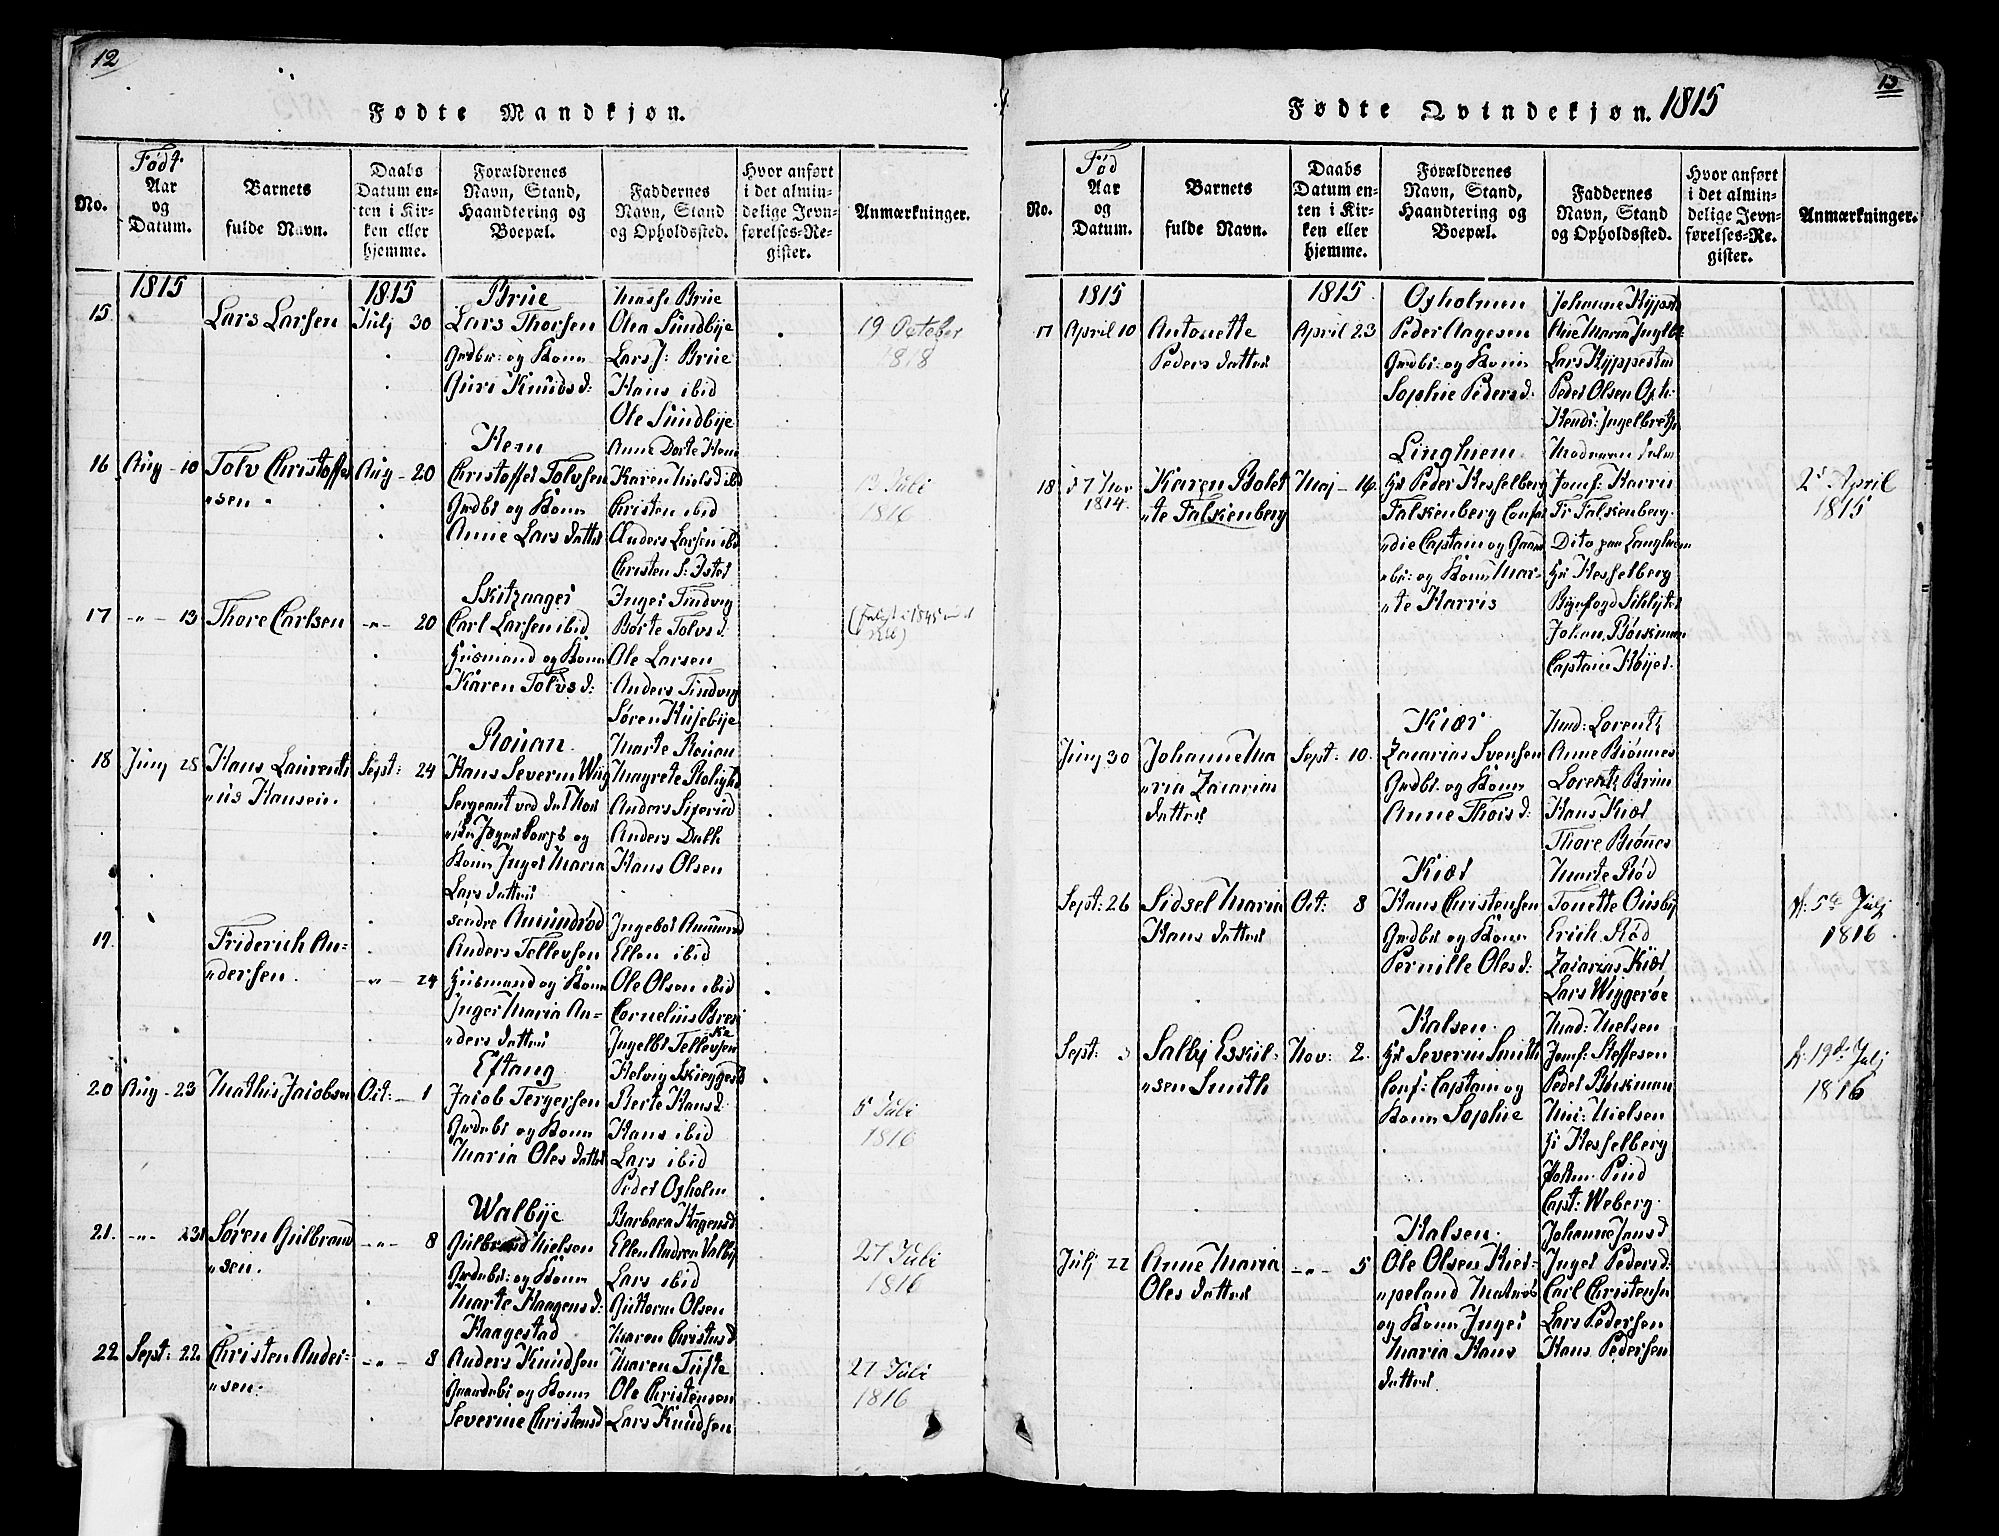 12
Fødte Mandkjøn.
No.
Født
Aar
og
Datum.
Barnets
fulde Navn.
Daabs
Datum en-
ten i Kir-
ken eller
hjemme.
Forældrenes
Navn, Stand,
Haandtering og
Boepæl.
Faddernes
Navn, Stand
og Opholdssted.
Hvor anført
i det almin-
delige Jevn-
førelses-Re-
gister.
Anmærkninger.
1815
1815
15
Lars Larsen
Julj 30
Brue
Lars Thorsen
Grdbr: og Konn
Guri Knudsd:
Masse Brue
Olea Sundbye
Lars J: Brue
Hans ibid
Ole Sundbye
19 October
1818
16
Aug - 10
Tolv Christoffer
"sen.
Aug - 20
Hem
Christoffer Tolvsen
Grdbr og Konn
Anne Lars datter
Anne Dorte Hem
Karen Nielsd ibid
Christen ibid
Anders Larsen ibd
Christen S: Istre
13 Juli
1816
17
-"- 13
Thore Carlsen
-"- 20
Skitzaager
Carl Larsen ibid
Huusmand og Konn
Karen Tolvsd:
Inger Tindvig
Børte Tolvsd:
Ole Larsen
Anders Tindvig
Søren Husebye
18
Juny 28
Hans Laurenti
"us Hansen.
Sept: 24
Rouan
Hans Severin Wiig
Sergeant ved det Nor
Konn Inger Maria
Lars datter
Marte Rouan
Magrete Roligh
Anders
Anders Dalk
Hans Olsen
19
Friderich An-
"dersen.
-"- 24
søndre Amundrød
Anders Tellevsen
Huusmand og Konn
Inger Maria An-
"ders datter
Ingebor Amunrød
Ellen ibid
Ole Olsen ibid
Cornelius Bresk
ke
Ingelbr Tellevsen
20
Aug - 23
Mathis Jacobsen
Oct: - 1
Eftang
Jacob Tergersen
Grdbr og Konn
Maria Oles datter
Helvig Skieggest
Berte Hansd:
Hans ibid
Lars ibid
Peder Oxholm
5 Juli
1816
21.
-"- 23
Søren Gulbrand
"sen.
-"- 8
Walbye
Gulbrand Nielsen
Grdbr: og Konn
Marte Haagensd:
Barbara Hagensd
Ellen Andrea Valby
Lars ibid
Guttorm Olsen
Maren Christensd
27 Juli
1816
22
Sept: 22
Christen Ander-
"sen.
-"- 8
Haagestad
Anders Knudsen
Gaardbr og Konn
Severine Christensd
Maren Tufte
Ole Christensen
Lars Knudsen
27 Juli
1816
13
Fødte Qvindekjøn. 1815
No.
Fød
Aar
og
Datum.
Barnets
fulde Navn.
Daabs
Datum en-
ten i Kir-
ken eller
hjemme.
Forældrenes
Navn, Stand,
Haandtering og
Boepæl.
Faddernes
Navn, Stand
og Opholdssted.
Hvor anført
i det almin-
delige Jevn-
førelses-Re-
gister.
Anmærkninger.
1815
1815
17
April 10
Antonette
Peders datter
April 23
Oxholmen
Peder Aagesen
Grdbr: og Konn
Sophie Pedersd:
Johanne Hyppest
Ane Maria Ingelbr
Lars Hyppestad
Peder Olsen Oxh:
Hendr: Ingelbrets
18
d 7 Nov
1814.
Karen Bolet
"te Falskenberg
Maj - 16
Linghiem
Hr Peder Hesselberg
Falskenberg Confor
"die Captain og Gaard
"br: og Konn Mar-
"te Harris
Jomf: Harris
Fr Falskenberg.
Dito paa Langhiem
Hr Hesselberg
Byefogd
Johan Børckman
Captain Høyer.
2d April
1815
Juny 30
Johanne Ma
"ria Zacarias
datter
Sept: 10.
Kiær
Zacarias Svensen
Grdbr. og Konn
Anne Thorsd:
Mad: Lorentz
Anne Biønnes
Lorentz Brun
Hans Kiær
Thore Biønnes
Sept: 26
Sidsel Maria
Hans datter
Oct: 8
Kiær
Hans Christensen
Grdbr og Konn
Pernille Olesd:
Marte Rød
Tonette Ousby
Erich Rød
Zacarias Kiær
Lars Wiggerøe
5te Julj
1816
Sept:
Salby Eskil-
"sen Smith
Nov: 2.
Halsen.
Hr Severin Smith
Conf: Captain og
Konn Sophie
Mad: Nielsen
Jomf: Steffesen
Peder Børckman
Nic: Nielsen
Hr Hesselberg
Capt: Weberg.
19d: Julj
1816
Julj 22
Anne Maria
Oles datter
-"- 5
Halsen.
Ole Olsen Kies-
"peland Matros
og Konn Inger
Maria Hans
datter
Johanne Jansd
Inger Pedersd:
Carl Christensen
Lars Pedersen
Hans Pedersen